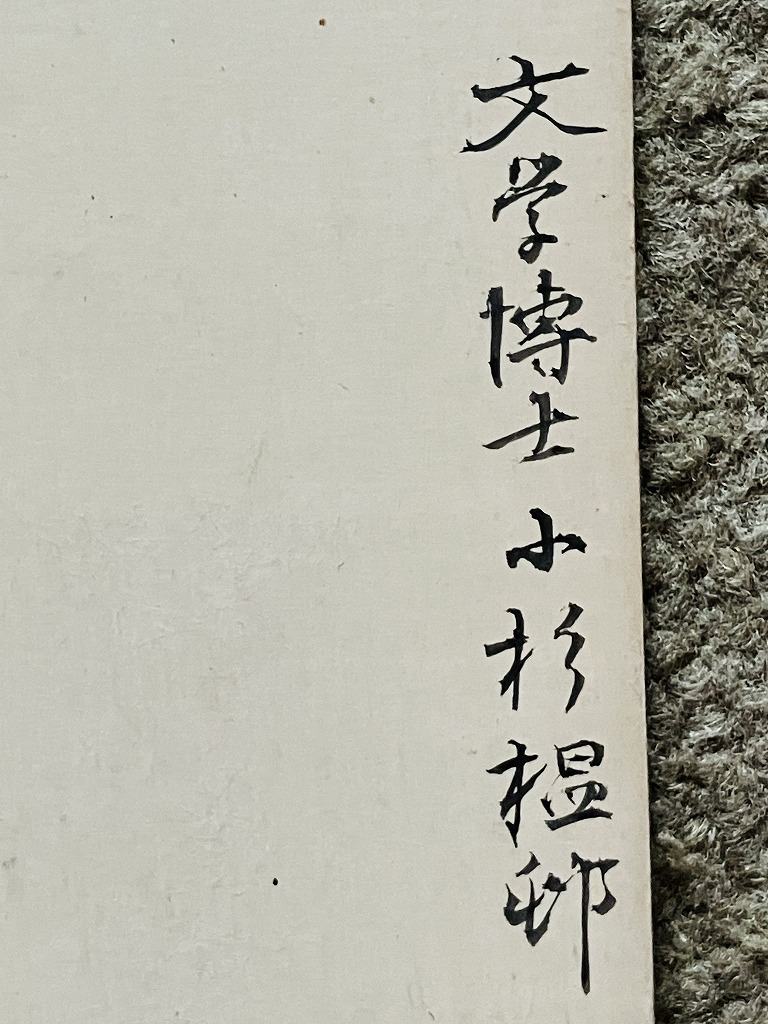 文学博士 小杉榲邨